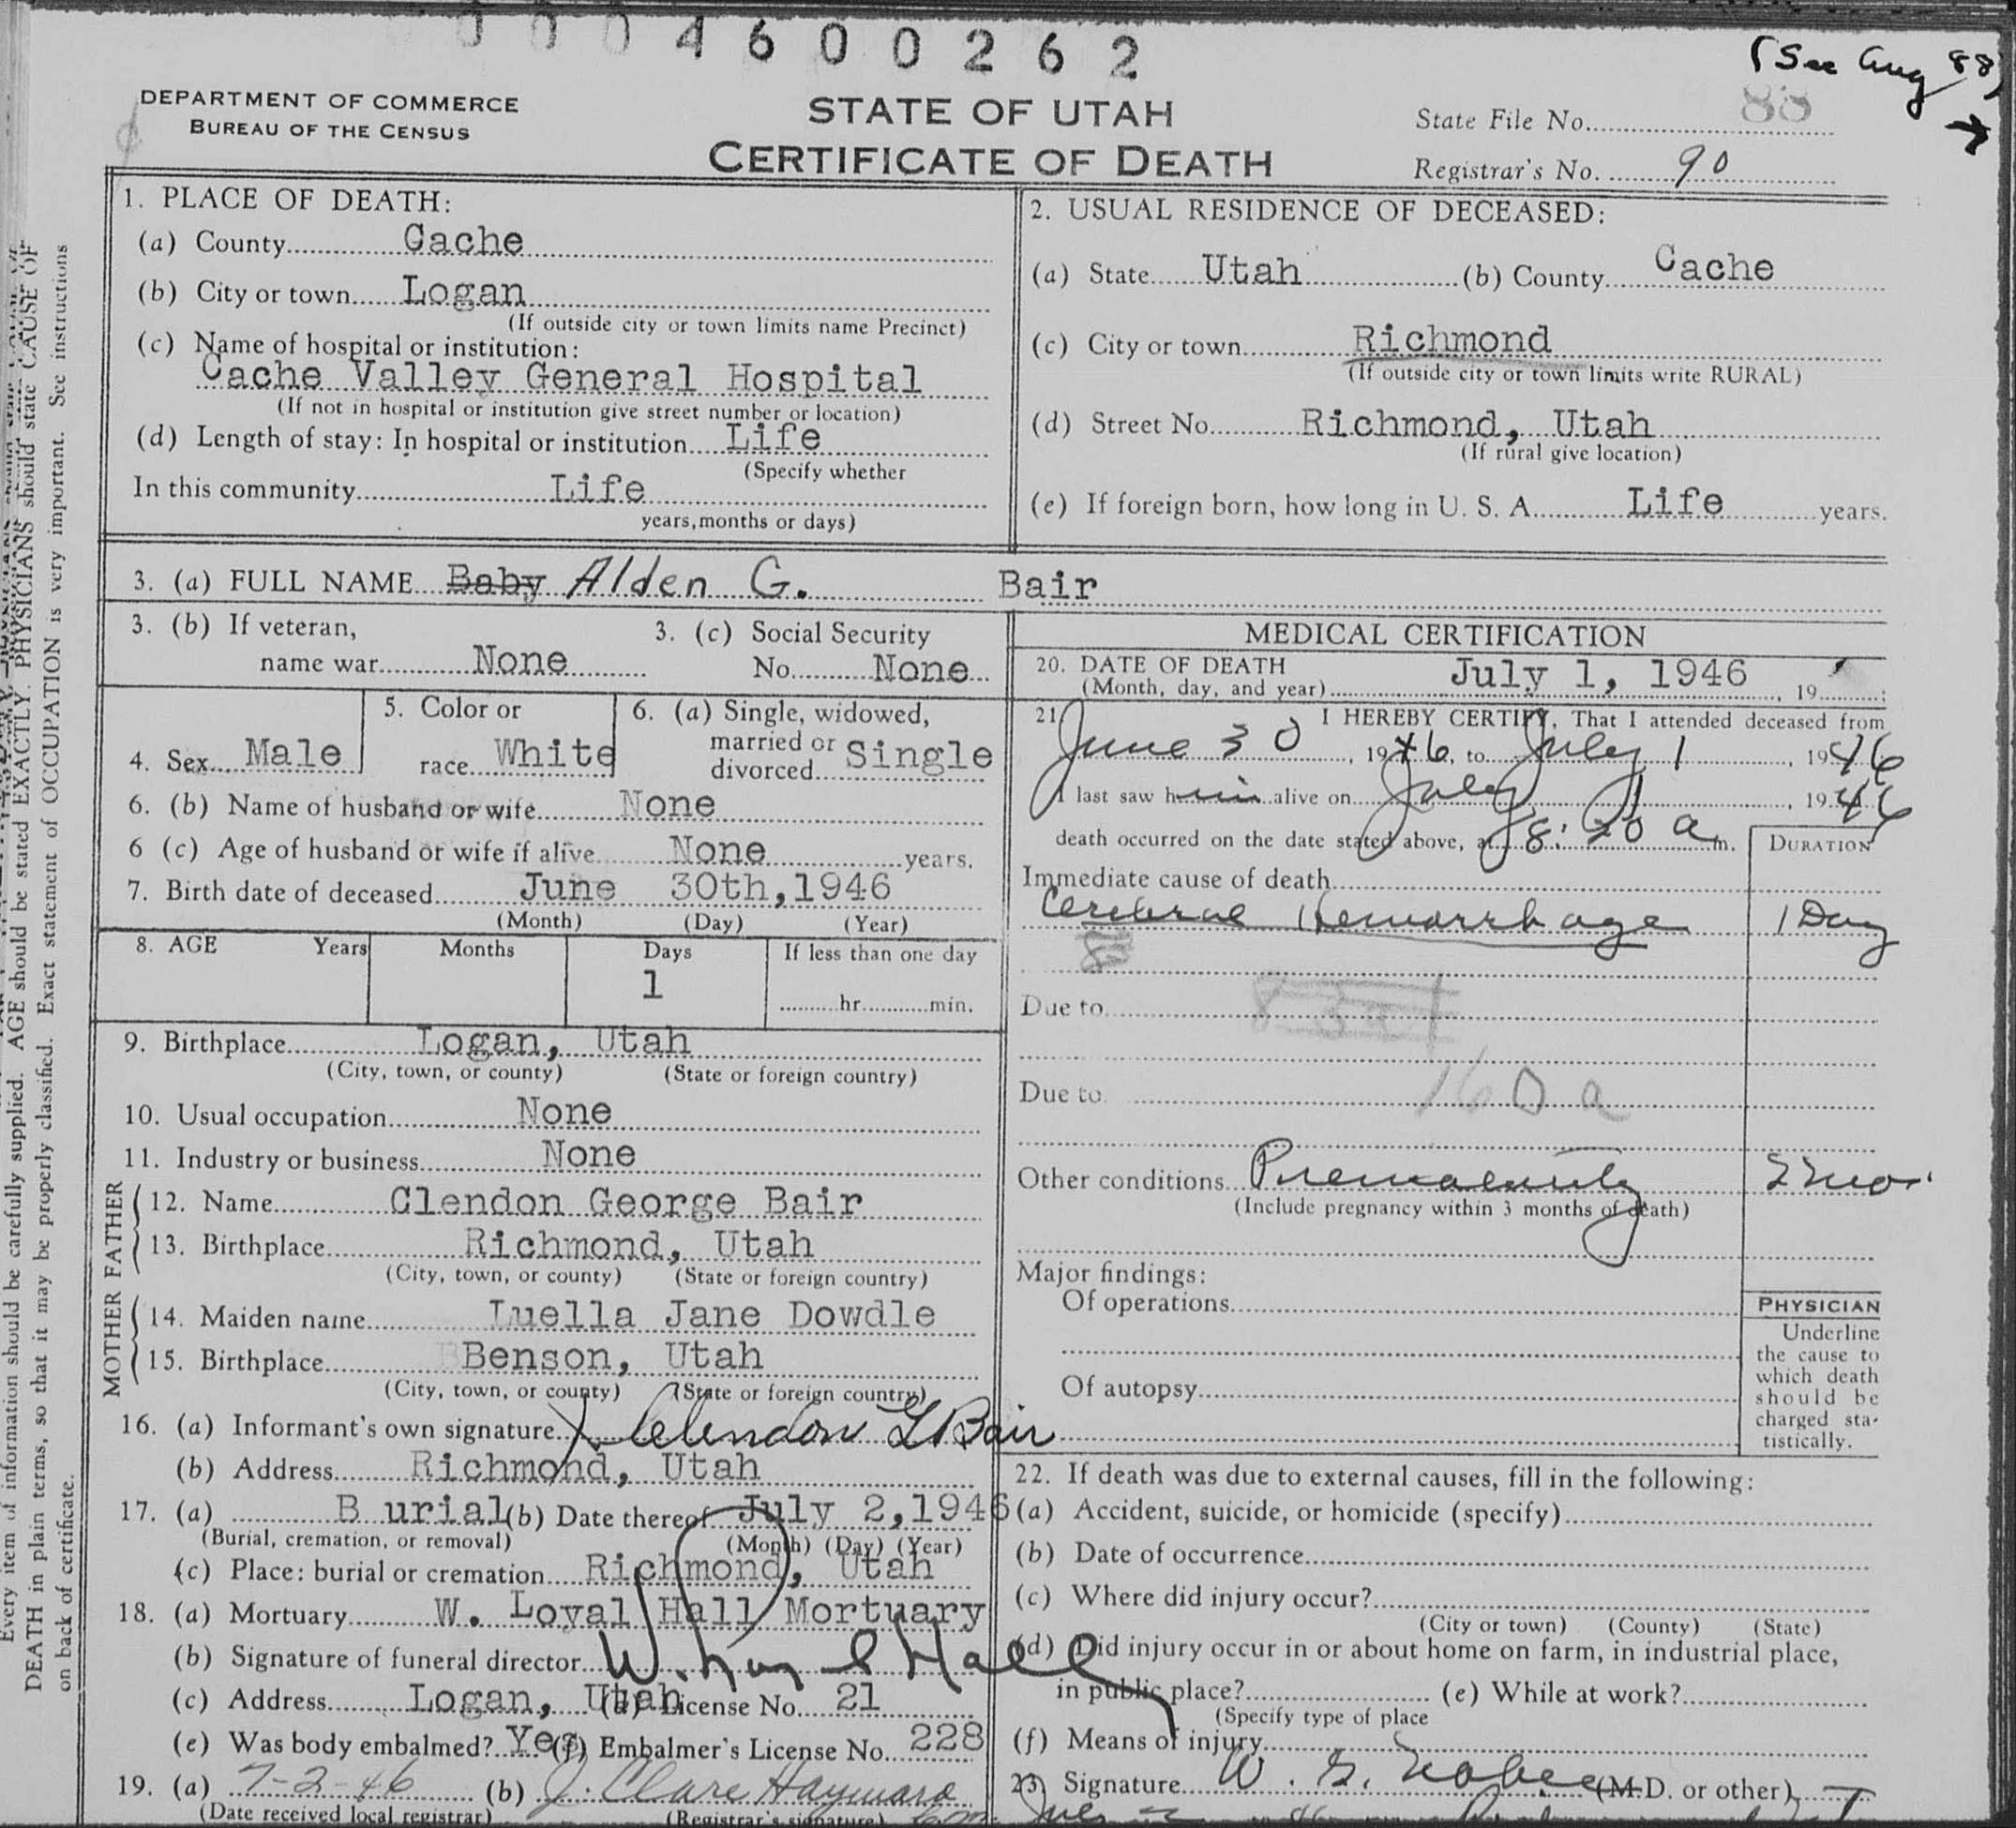 0004600262
(See Aug 88)
DEPARTMENT OF COMMERCE
BUREAU OF THE CENSUS
STATE OF UTAH
CERTIFICATE OF DEATH
State File No. 88
Registrar's No. 90
1. PLACE OF DEATH:
(a) County Cache
(b) City or town Logan
(If outside city or town limits name Precinct)
(c) Name of hospital or institution:
Cache Valley General Hospital
(If not in hospital or institution give street number or location)
(d) Length of stay: In hospital or institution Life
(Specify whether
In this community Life
years, months or days)
2. USUAL RESIDENCE OF DECEASED:
(a) State Utah (b) County Cache
(c) City or town Richmond
(If outside city or town limits write RURAL)
(d) Street No. Richmond, Utah
(If rural give location)
(e) If foreign born, how long in U. S. A. Life years.
3. (a) FULL NAME Baby Alden G. Bair
3. (b) If veteran,
name war None
3. (c) Social Security
No. None
4. Sex Male
5. Color or
race White
6. (a) Single, widowed,
married or
divorced Single
6. (b) Name of husband or wife None
6 (c) Age of husband or wife if alive None years.
7. Birth date of deceased June 30th, 1946
(Month) (Day) (Year)
8. AGE Years Months Days If less than one day
1
hr. min.
9. Birthplace Logan, Utah
(City, town, or county) (State or foreign country)
10. Usual occupation None
11. Industry or business None
FATHER
12. Name Clendon George Bair
13. Birthplace Richmond, Utah
(City, town, or county) (State or foreign country)
MOTHER
14. Maiden name Luella Jane Dowdle
15. Birthplace Benson, Utah
(City, town, or county) (State or foreign country)
16. (a) Informant's own signature X Clendon G Bair
(b) Address Richmond, Utah
17. (a) B urial (b) Date thereof July 2, 1946
(Burial, cremation, or removal) (Month) (Day) (Year)
(c) Place: burial or cremation Richmond, Utah
18. (a) Mortuary W. Loyal Hall Mortuary
(b) Signature of funeral director W. Loyal Hall
(c) Address Logan, Utah (d) License No. 21
(e) Was body embalmed? Yes (f) Embalmer's License No. 228
19. (a) 7-2-46 (b) J. Clare Hayward
(Date received local registrar) (Registrar's signature)
MEDICAL CERTIFICATION
20. DATE OF DEATH July 1, 1946
(Month, day, and year) , 19 :
21. I HEREBY CERTIFY, That I attended deceased from
June 30, 1946, to July 1, 1946
I last saw him alive on July 1, 1946
death occurred on the date stated above, at 8:20 a m.
DURATION
Immediate cause of death
Cerebral Hemorrhage 1 Day
Due to
Due to 160 a
Other conditions Prematurity 2 mos.
(Include pregnancy within 3 months of death)
Major findings:
Of operations
Of autopsy
PHYSICIAN
Underline
the cause to
which death
should be
charged sta-
tistically.
22. If death was due to external causes, fill in the following:
(a) Accident, suicide, or homicide (specify)
(b) Date of occurrence
(c) Where did injury occur?
(City or town) (County) (State)
(d) Did injury occur in or about home on farm, in industrial place,
in public place? (e) While at work?
(Specify type of place
(f) Means of injury
23. Signature W. G. (M.D. or other)
Every item of information should be carefully supplied. AGE should be stated EXACTLY. PHYSICIANS should state CAUSE OF
DEATH in plain terms, so that it may be properly classified. Exact statement of OCCUPATION is very important. See instructions
on back of certificate.